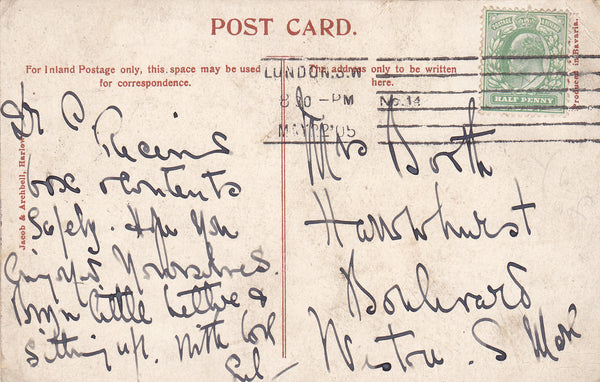 POST CARD.
For Inland Postage only, this space may be used
for correspondence.
The address only to be written
here.
LONDON.S.W
8 30 - PM No. 14
MAY 22 05
HALF PENNY
Produced in Bavaria.
Jacob & Archbell, Harlow
Dr C
box & contents
Safely. Hope you
Enjoyed Yourselves.
little Lettice &
Sitting up. With love
Mrs Booth
Hawkhurst
Boulevard
Weston. S. Mare